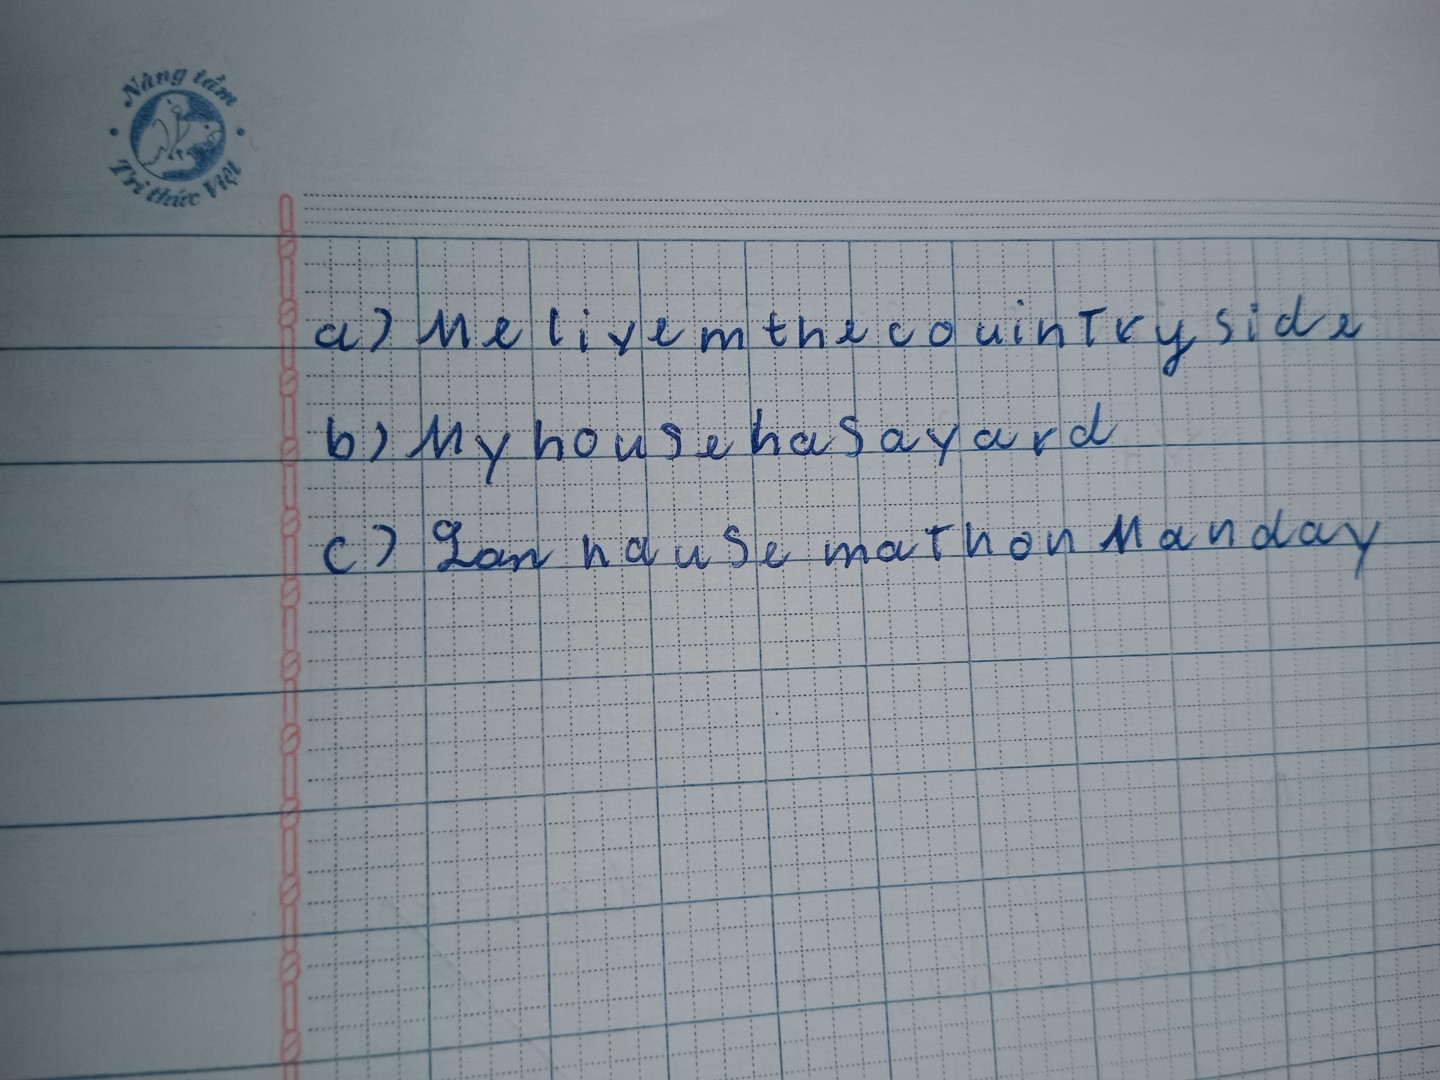 Nâng tầm
Tri thức Việt
a) Me live m the couintryside
b) My house has a yard
c) Lan hause math on Manday